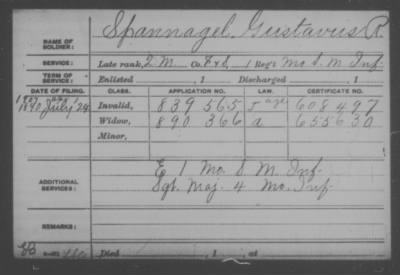 NAME OF SOLDIER: Spannagel, Gustavus R.
SERVICE: Late rank, 2 M Co. F & S, 1 Reg't Mo. S. M. Inf.
TERM OF SERVICE: Enlisted , 1 Discharged , 1
DATE OF FILING. CLASS. APPLICATION NO. LAW. CERTIFICATE NO.
1890 July 24 Invalid, 839 565 608 497
Widow, 890 366 a 655 630
Minor,
ADDITIONAL SERVICES: E 1 Mo. S. M. Inf.
Sgt. Maj. 4 Mo. Inf.
REMARKS:
Died , 1 , at